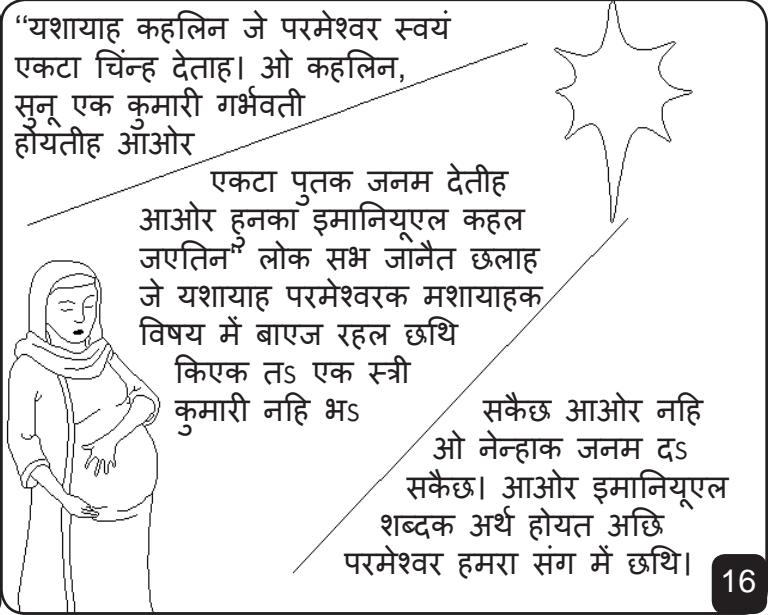 “यशायाह कहलिन जे परमेश्वर स्वयं
एकटा चिंन्ह देताह। ओ कहलिन,
सुनू एक कुमारी गर्भवती
होयतीह आओर
एकटा पुतक जनम देतीह
आओर हुनका इमानियूएल कहल
जएतिन“ लोक सभ जानैत छलाह
जे यशायाह परमेश्वरक मशायाहक
विषय में बाएज रहल छथि
किएक तऽ एक स्त्री
कुमारी नहि भऽ
सकैछ आओर नहि
ओ नेन्हाक जनम दऽ
सकैछ। आओर इमानियूएल
शब्दक अर्थ होयत अछि
परमेश्वर हमरा संग में छथि।
16